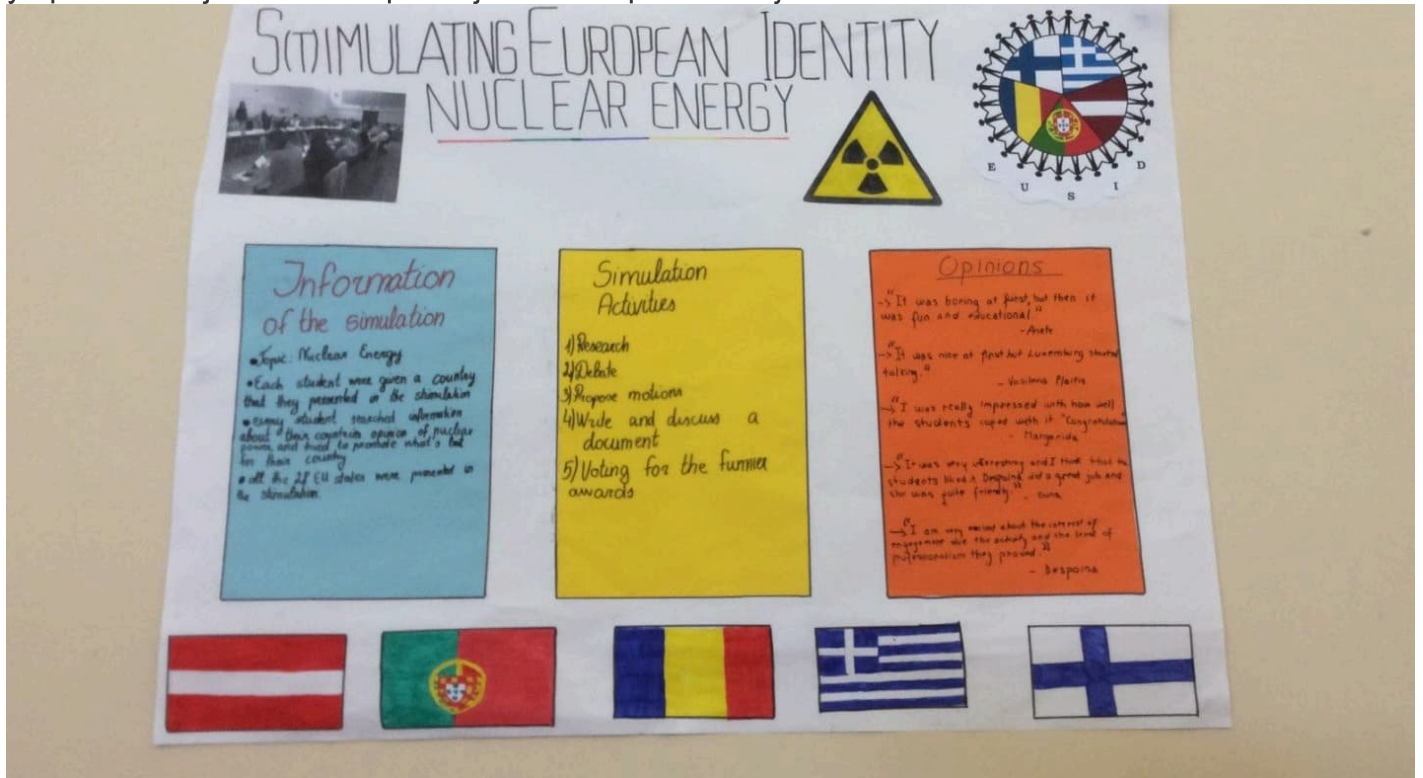 S(T)IMULATING EUROPEAN IDENTITY
NUCLEAR ENERGY
E U S I D
Information
of the simulation
Topic: Nuclear Energy
Each student were given a country
that they presented in the stimulation
student searched information
about their countries opinion of nuclear
power and tried to promote what's best
for their country
all the 27 EU states were presented in
the stimulation.
Simulation
Activities
1) Research
2) Debate
3) Propose motions
4) Write and discuss a
document
5) Voting for the funnier
awards
Opinions
"It was boring at first, but then it
was fun and educational."
- Anete
"It was nice at first but Luxemburg started
talking."
- Vasiliana
"I was really impressed with how well
the students coped with it "Congratulations
- Margarida
"It was very interesting and I think that the
students liked it Despoina did a great job and
she was quite friendly"
"I am very about the interest of
engagement the activity and the level of
professionalism they proved."
- Despoina